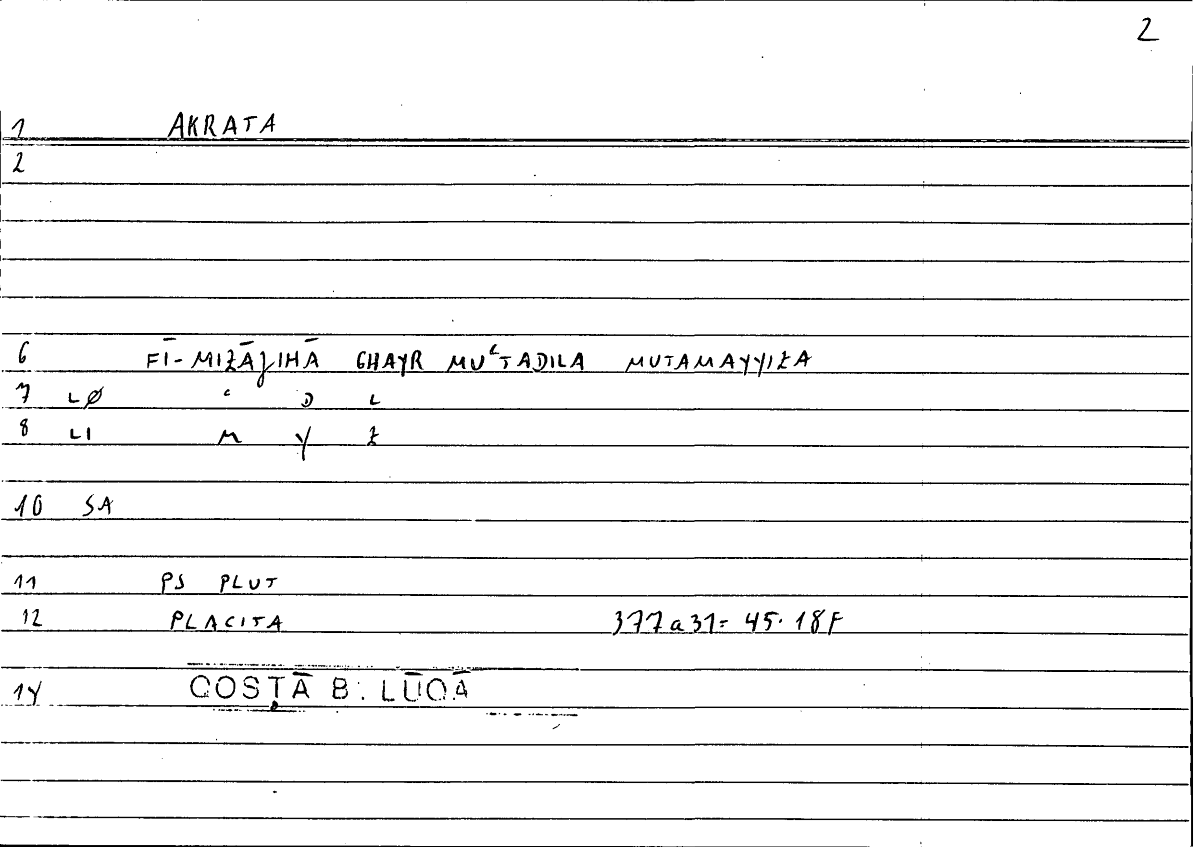 2
1 AKRATA
2
6 FĪ-MIZĀJIHĀ GHAYR MUʿTADILA MUTAMAYYIZA
7 LØ ʿ D L
8 LI M Y Z
10 SA
11 PS PLUT
12 PLACITA 377a31= 45.18F
14 QOSṬĀ B. LŪQĀ